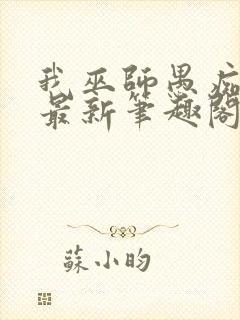 我巫師愚痴
最新筆趣閣
蘇小昀